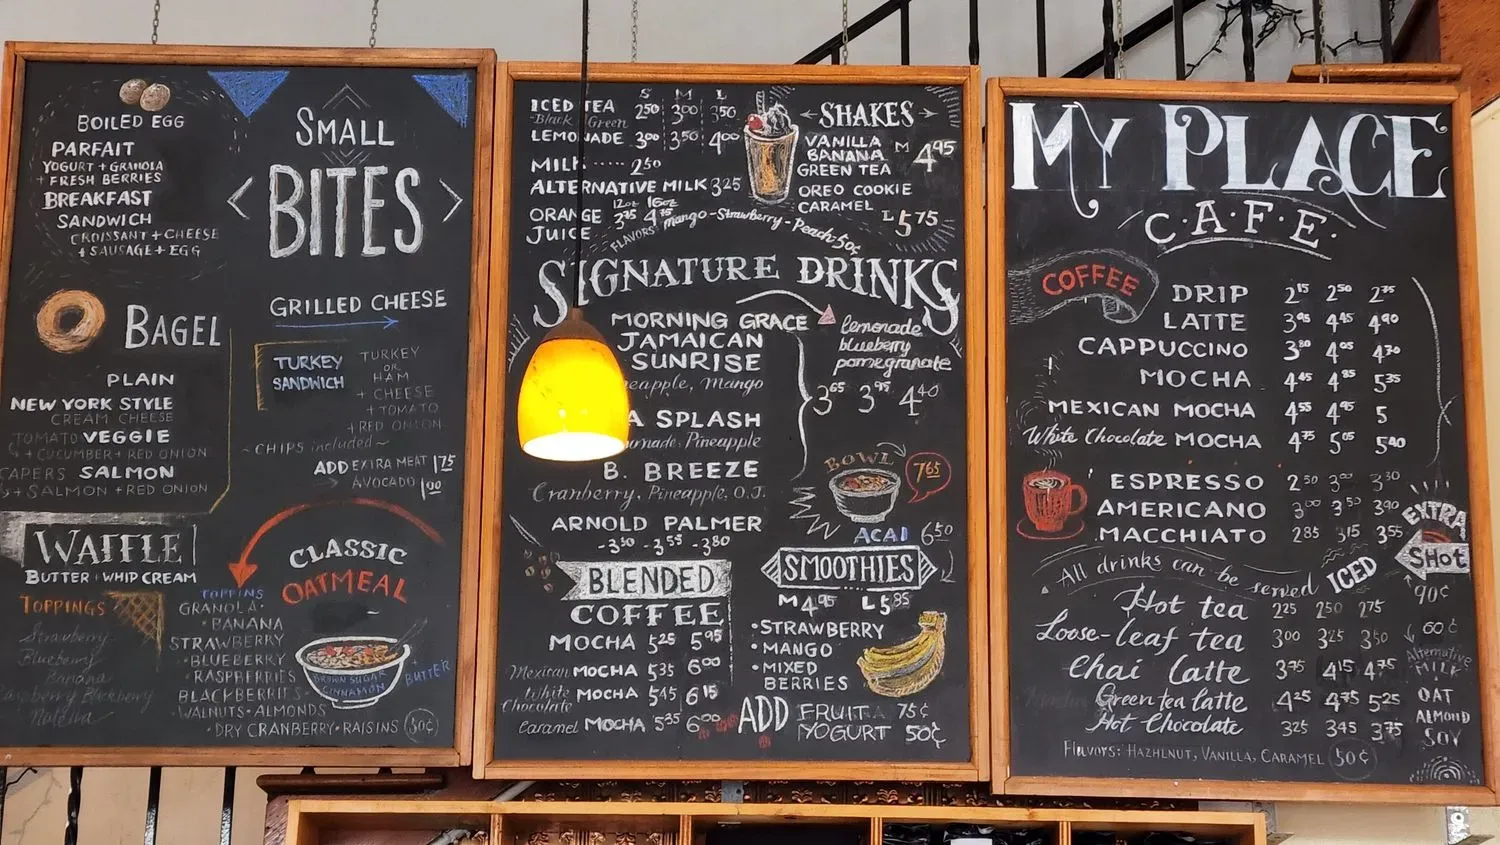 BOILED EGG
PARFAIT
YOGURT + GRANOLA
+ FRESH BERRIES
BREAKFAST
SANDWICH
CROISSANT + CHEESE
+ SAUSAGE + EGG
SMALL
BITES
BAGEL
PLAIN
NEW YORK STYLE
CREAM CHEESE
TOMATO VEGGIE
+ CUCUMBER + RED ONION
CAPERS SALMON
+ SALMON + RED ONION
GRILLED CHEESE
TURKEY
SANDWICH
TURKEY
OR
HAM
+ CHEESE
+ TOMATO
+ RED ONION
~ CHIPS included ~
ADD EXTRA MEAT 1 75
AVOCADO 1 00
WAFFLE
BUTTER + WHIP CREAM
TOPPINGS
Strawberry
Blueberry
Banana
Blackberry
Nutella
CLASSIC
OATMEAL
TOPPINS
GRANOLA •
• BANANA
STRAWBERRY
• BLUEBERRY
• RASPBERRIES
BLACKBERRIES
WALNUTS • ALMONDS
• DRY CRANBERRY • RAISINS 50¢
BROWN SUGAR
CINNAMON
+ BUTTER
S M L
ICED TEA 2 50 3 00 3 50
Black Green
LEMONADE 3 00 3 50 4 00
MILK ····· 2 50
ALTERNATIVE MILK 3 25
12oz 16oz
ORANGE 3 75 4 75
JUICE
FLAVORS: Mango - Strawberry - Peach 50¢
SHAKES
VANILLA
BANANA M 4 95
GREEN TEA
OREO COOKIE
CARAMEL
L 5 75
SIGNATURE DRINKS
MORNING GRACE
lemonade
blueberry
pomegranate
JAMAICAN
SUNRISE
Pineapple, Mango
3 65 3 95 4 40
A SPLASH
Pineapple
B. BREEZE
Cranberry, Pineapple, O.J.
ARNOLD PALMER
- 3 30 - 3 55 - 3 80
BOWL
7 65
ACAI 6 50
BLENDED
COFFEE
MOCHA 5 25 5 95
Mexican MOCHA 5 35 6 00
White
Chocolate MOCHA 5 45 6 15
Caramel MOCHA 5 35 6 00
SMOOTHIES
M 4 95 L 5 85
• STRAWBERRY
• MANGO
• MIXED
BERRIES
ADD FRUIT 75¢
YOGURT 50¢
MY PLACE
C·A·F·E·
COFFEE
DRIP 2 15 2 50 2 75
LATTE 3 95 4 45 4 90
CAPPUCCINO 3 80 4 05 4 70
MOCHA 4 45 4 85 5 35
MEXICAN MOCHA 4 55 4 95 5
White Chocolate MOCHA 4 75 5 05 5 40
ESPRESSO 2 50 3 00 3 30
AMERICANO 3 00 3 50 3 90
MACCHIATO 2 85 3 15 3 55
All drinks can be served ICED
EXTRA
SHOt
90¢
Hot tea 2 25 2 50 2 75
Loose-leaf tea 3 00 3 25 3 50
Chai Latte 3 75 4 15 4 75
Green tea latte 4 25 4 75 5 25
Hot Chocolate 3 25 3 45 3 75
60¢
Alternative
MILK
OAT
ALMOND
SOY
FLAVORS: HAZHLNUT, VANILLA, CARAMEL 50¢